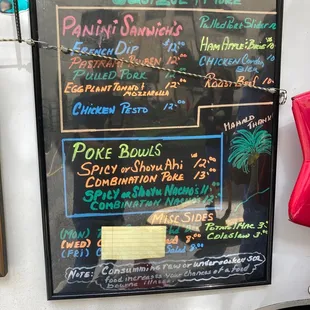 PANINI SANDWICH'S
FRENCH DIP 12.00
PASTRAMI RUBEN 12.00
PULLED PORK 12.00
EGG PLANT TOMATO MOZZARELLA
CHICKEN PESTO 12.00
PULLED BEEF SLIDER
HAM APPLE BRIE 10
CHICKEN CORDON BLEU
ROAST BEEF 10
MAHALO
POKE BOWLS
SPICY OR SHOYU AHI 12.00
COMBINATION POKE 13.00
SPICY OR SHOYU NACHOS 11.00
COMBINATION NACHOS 12
MISC SIDES
(MON)
(WED)
(FRI) SALAD 8.00
POTATO/MAC 3.00
COLESLAW 3.00
NOTE: CONSUMMING RAW OR UNDERCOOKED
FOOD INCREASES YOUR CHANCES OF A FOOD
BOURNE ILLNESS